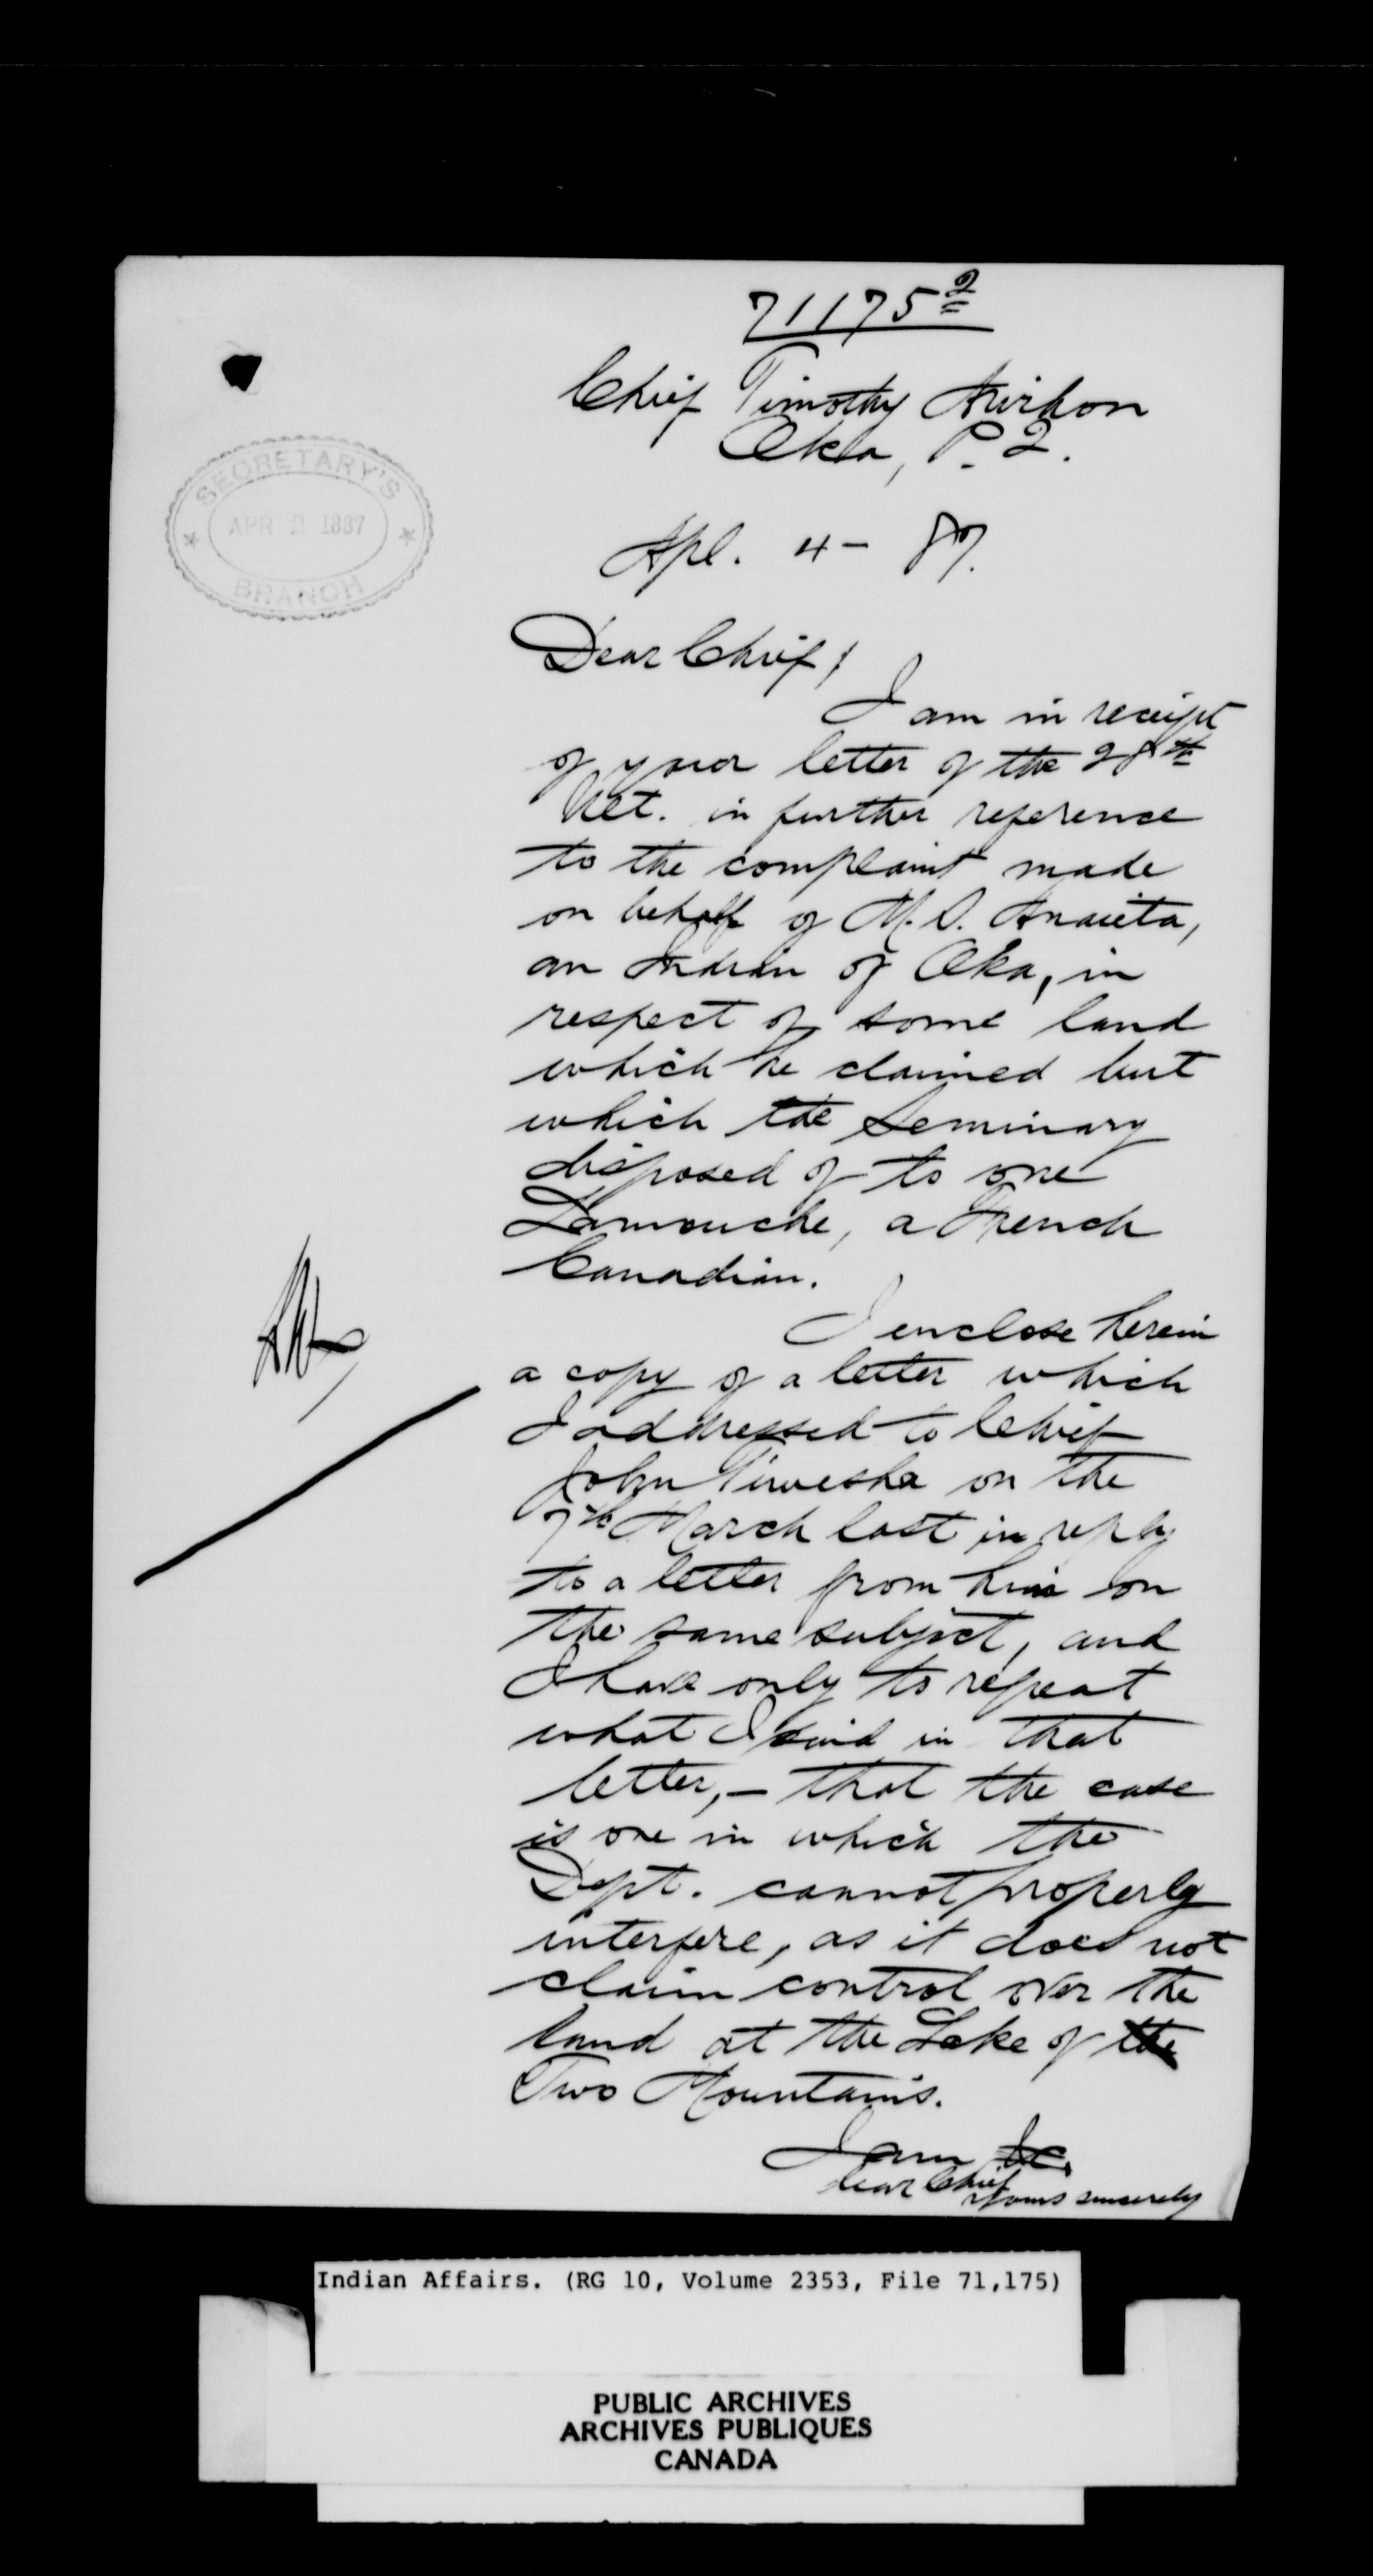 71175²
Chief Timothy Arirhon
Oka, P.Q.
SECRETARY'S
APR 1887
BRANCH
Apl. 4 - 87.
Dear Chief,
I am in receipt
of your letter of the 28th
Ult. in further reference
to the complaint made
on behalf of M. S. Anarieta,
an Indian of Oka, in
respect of some land
which he claimed but
which the Seminary
disposed of to one
Lamouche, a French
Canadian.
I enclose herein
a copy of a letter which
I addressed to Chief
John Tiwesha on the
7th March last in reply
to a letter from him on
the same subject, and
I have only to repeat
what I said in that
letter, - that the case
is one in which the
Dept. cannot properly
interfere, as it does not
claim control over the
land at the Lake of the
Two Mountains.
I am &c.
dear Chief
Yours sincerely
Indian Affairs. (RG 10, Volume 2353, File 71,175)
PUBLIC ARCHIVES
ARCHIVES PUBLIQUES
CANADA